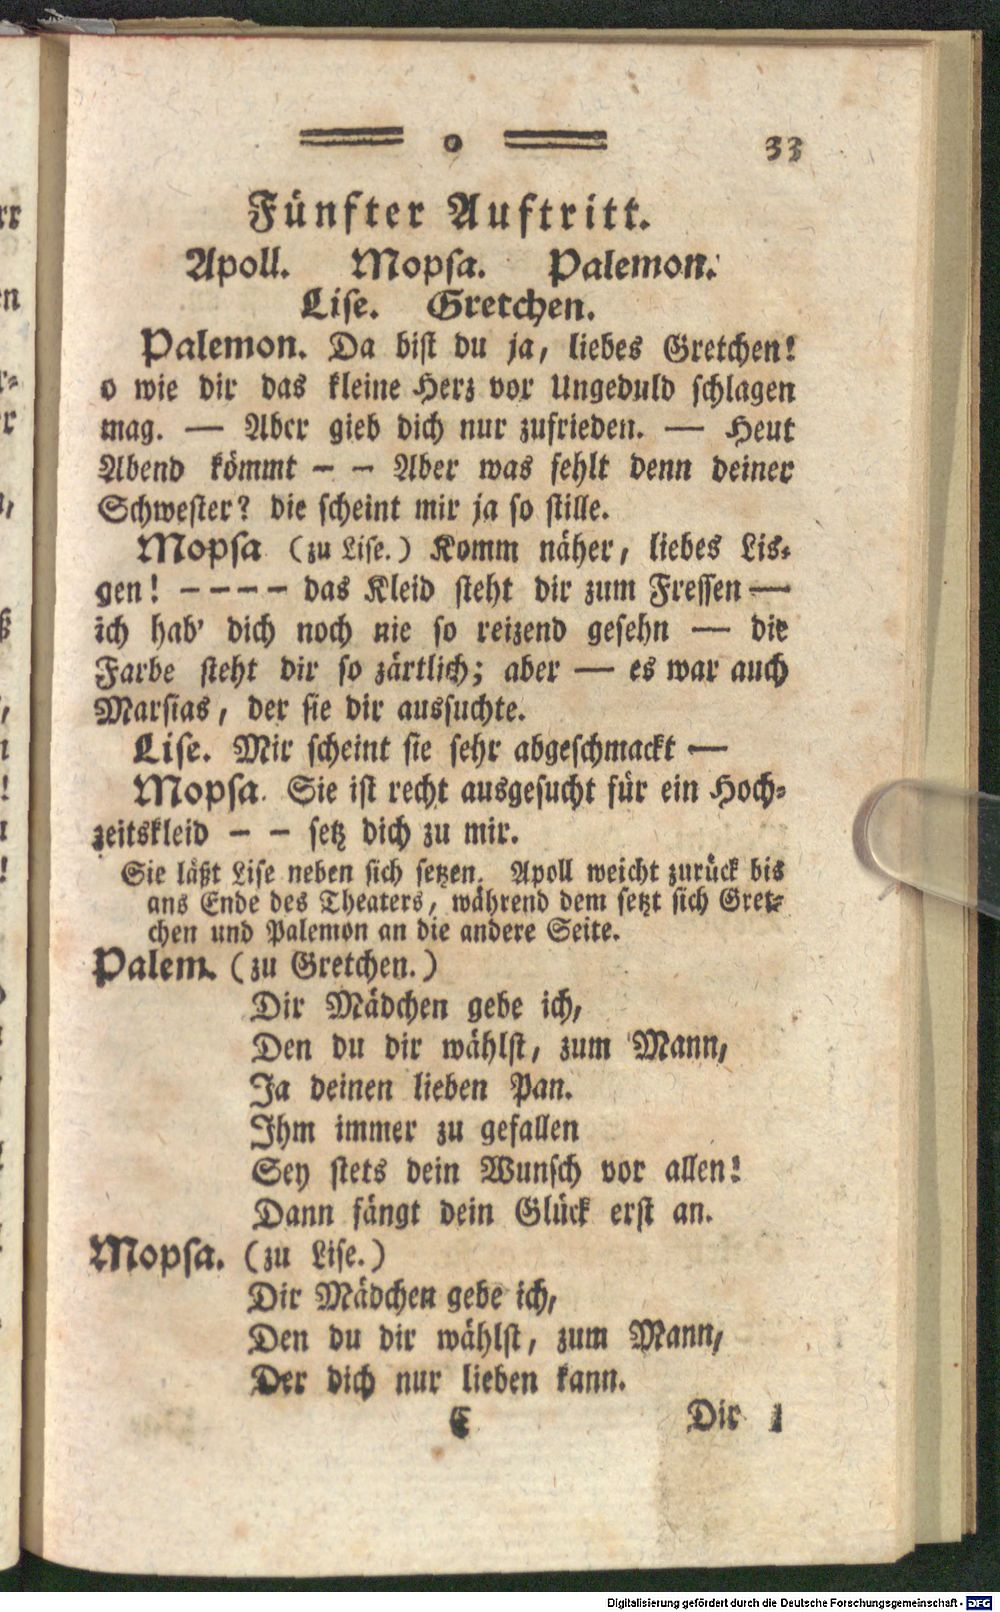 o 33
Fünfter Auftritt.
Apoll. Mopsa. Palemon.
Lise. Gretchen.
Palemon. Da bist du ja, liebes Gretchen!
o wie dir das kleine Herz vor Ungeduld schlagen
mag. — Aber gieb dich nur zufrieden. — Heut
Abend kömmt – – Aber was fehlt denn deiner
Schwester? die scheint mir ja so stille.
Mopsa (zu Lise.) Komm näher, liebes Lis-
gen! – – – – das Kleid steht dir zum Fressen —
ich hab' dich noch nie so reizend gesehn — die
Farbe steht dir so zärtlich; aber — es war auch
Marsias, der sie dir aussuchte.
Lise. Mir scheint sie sehr abgeschmackt —
Mopsa. Sie ist recht ausgesucht für ein Hoch-
zeitskleid – – setz dich zu mir.
Sie läßt Lise neben sich setzen. Apoll weicht zurück bis
ans Ende des Theaters, während dem setzt sich Gret-
chen und Palemon an die andere Seite.
Palem. (zu Gretchen.)
Dir Mädchen gebe ich,
Den du dir wählst, zum Mann,
Ja deinen lieben Pan.
Ihm immer zu gefallen
Sey stets dein Wunsch vor allen!
Dann fängt dein Glück erst an.
Mopsa. (zu Lise.)
Dir Mädchen gebe ich,
Den du dir wählst, zum Mann,
Der dich nur lieben kann.
C Dir
Digitalisierung gefördert durch die Deutsche Forschungsgemeinschaft - DFG